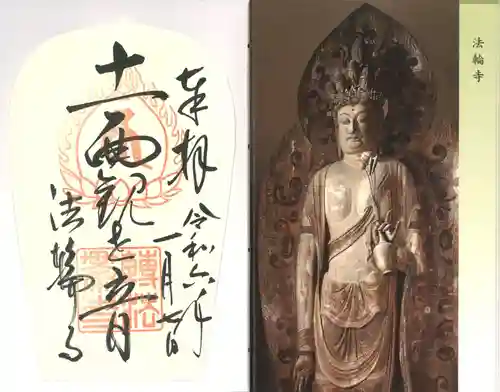 法輪寺
奉拝
令和六年
一月七日
十一面観世音
法輪寺